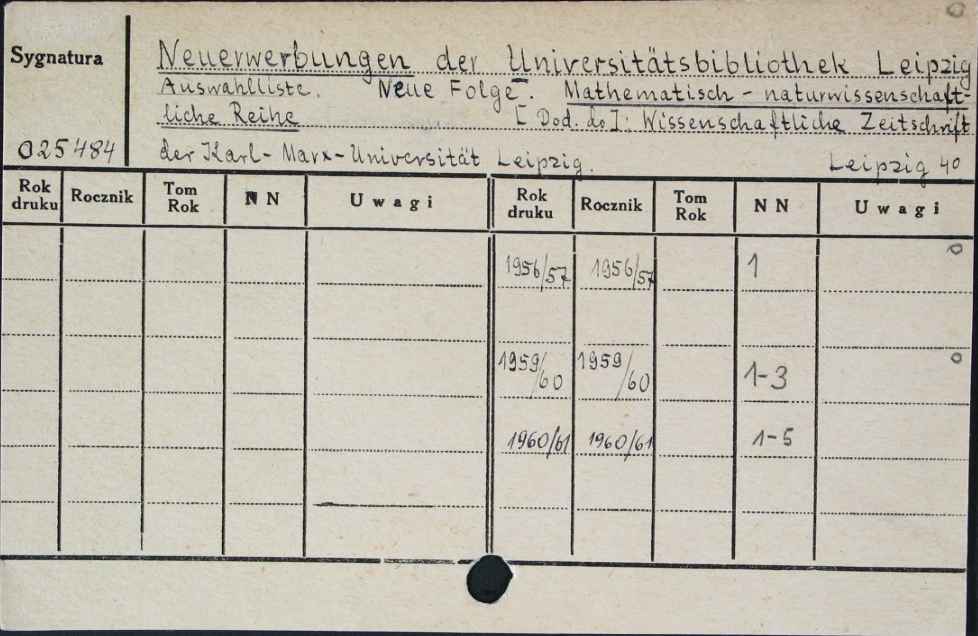 Sygnatura
Neuerwerbungen der Universitätsbibliothek Leipzig
Auswahlliste. Neue Folge. Mathematisch-naturwissenschaft-
liche Reihe [Dod. do]: Wissenschaftliche Zeitschrift
025484 der Karl-Marx-Universität Leipzig. Leipzig 40
Rok druku Rocznik Tom Rok NN Uwagi Rok druku Rocznik Tom Rok NN Uwagi
1956/57 1956/57 1 o
1959/60 1959/60 1-3 o
1960/61 1960/61 1-5